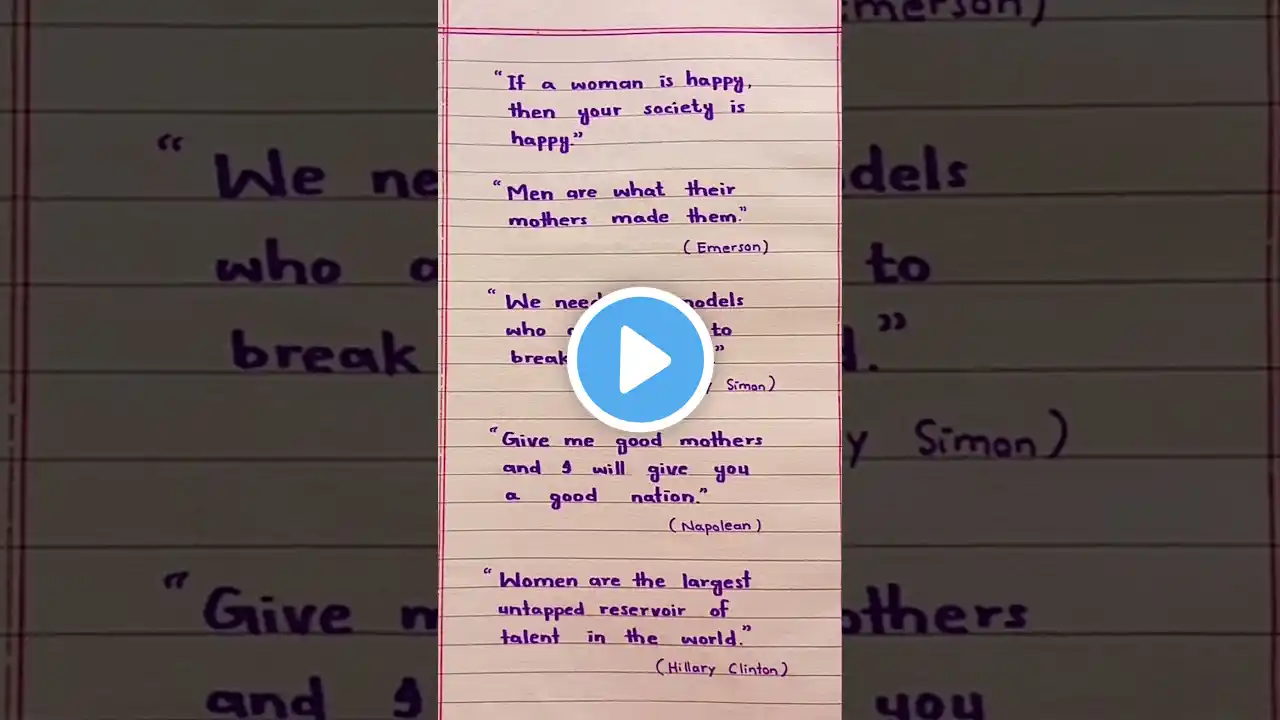 "If a woman is happy,
then your society is
happy."
"Men are what their
mothers made them."
(Emerson)
"We need models
who to
break "
Simon)
"Give me good mothers
and I will give you
a good nation."
(Napolean)
"Women are the largest
untapped reservoir of
talent in the world."
(Hillary Clinton)